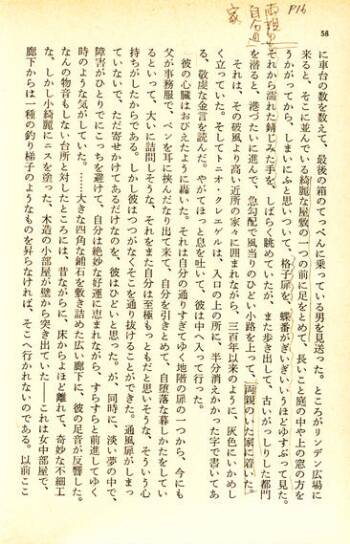 P16
両親の
自分の
家
58
に車台の数を数えて、最後の箱のてっぺんに乗っている男を見送った。ところがリンデン広場に
来ると、そこに並んでいる綺麗な屋敷の一つの前に足をとめて、長いこと庭の中や上の窓の方を
うかがってから、しまいにふと思いついて、格子扉を、蝶番がぎいぎいいうほどゆすぶって見た。
それから濡れた錆じみた手を、しばらく眺めていたが、また歩き出して、古いがっしりした都門
を潜ると、港づたいに進んで、急勾配で風当りのひどい小路を上って、両親のいた家に着いた。
それは、その破風より高い近所の家々に囲まれながら、三百年以来のように、灰色にいかめし
く立っていた。そしてトニオ・クレエゲルは、入口の上の所に、半分消えかかった字で書いてあ
る、敬虔な金言を読んだ。やがてほっと息を吐いて、彼は中へ入って行った。
彼の心臓はおびえたように轟いた。それは自分の通りすぎてゆく地階の扉の一つから、今にも
父が事務服で、ペンを耳に挟んだなり出て来て、自分を引きとめて、自堕落な暮しかたをしてい
るといって、大いに詰問しそうな、それをまた自分は至極もっともだと思いそうな、そういう心
持がしたからである。しかし彼はつつがなくそこを通り抜けることができた。通風扉がしまっ
ていないで、ただ寄せかけてあるだけなのを、彼はひどいと思った。が、同時に、淡い夢の中で、
障害がひとりでにこっちを避けて、自分は絶妙な好運に恵まれながら、すらすらと前進してゆく
時のような気がしていた。……大きな四角な鋪石を敷き詰めた広い廊下に、彼の足音が反響した。
なんの物音もしない台所と対したところには、昔ながらに、床からよほど離れて、奇妙な不細工
な、しかし小綺麗にニスを塗った、木造の小部屋が壁から突き出ていた――これは女中部屋で、
廊下からは一種の釣り梯子のようなものを昇らなければ、そこへ行かれないのである。以前ここ